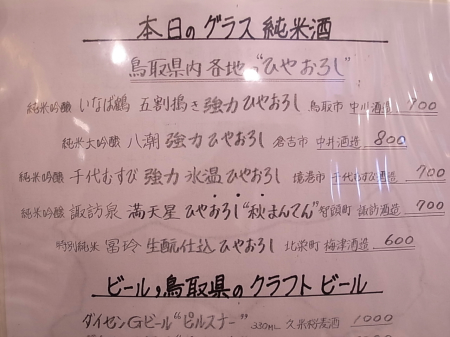 本日のグラス純米酒
鳥取県内各地“ひやおろし”
純米吟醸 いなば鶴 五割搗き強力ひやおろし 鳥取市 中川酒造 700
純米大吟醸 八潮 強力ひやおろし 倉吉市 中井酒造 800
純米吟醸 千代むすび 強力 氷温ひやおろし 境港市 千代むすび酒造 700
純米吟醸 諏訪泉 満天星 ひやおろし“秋まんてん” 智頭町 諏訪酒造 700
特別純米 冨玲 生酛仕込 ひやおろし 北栄町 梅津酒造 600
ビール，鳥取県のクラフトビール
ダイセンGビール“ピルスナー” 330ML 久米桜麦酒 1000